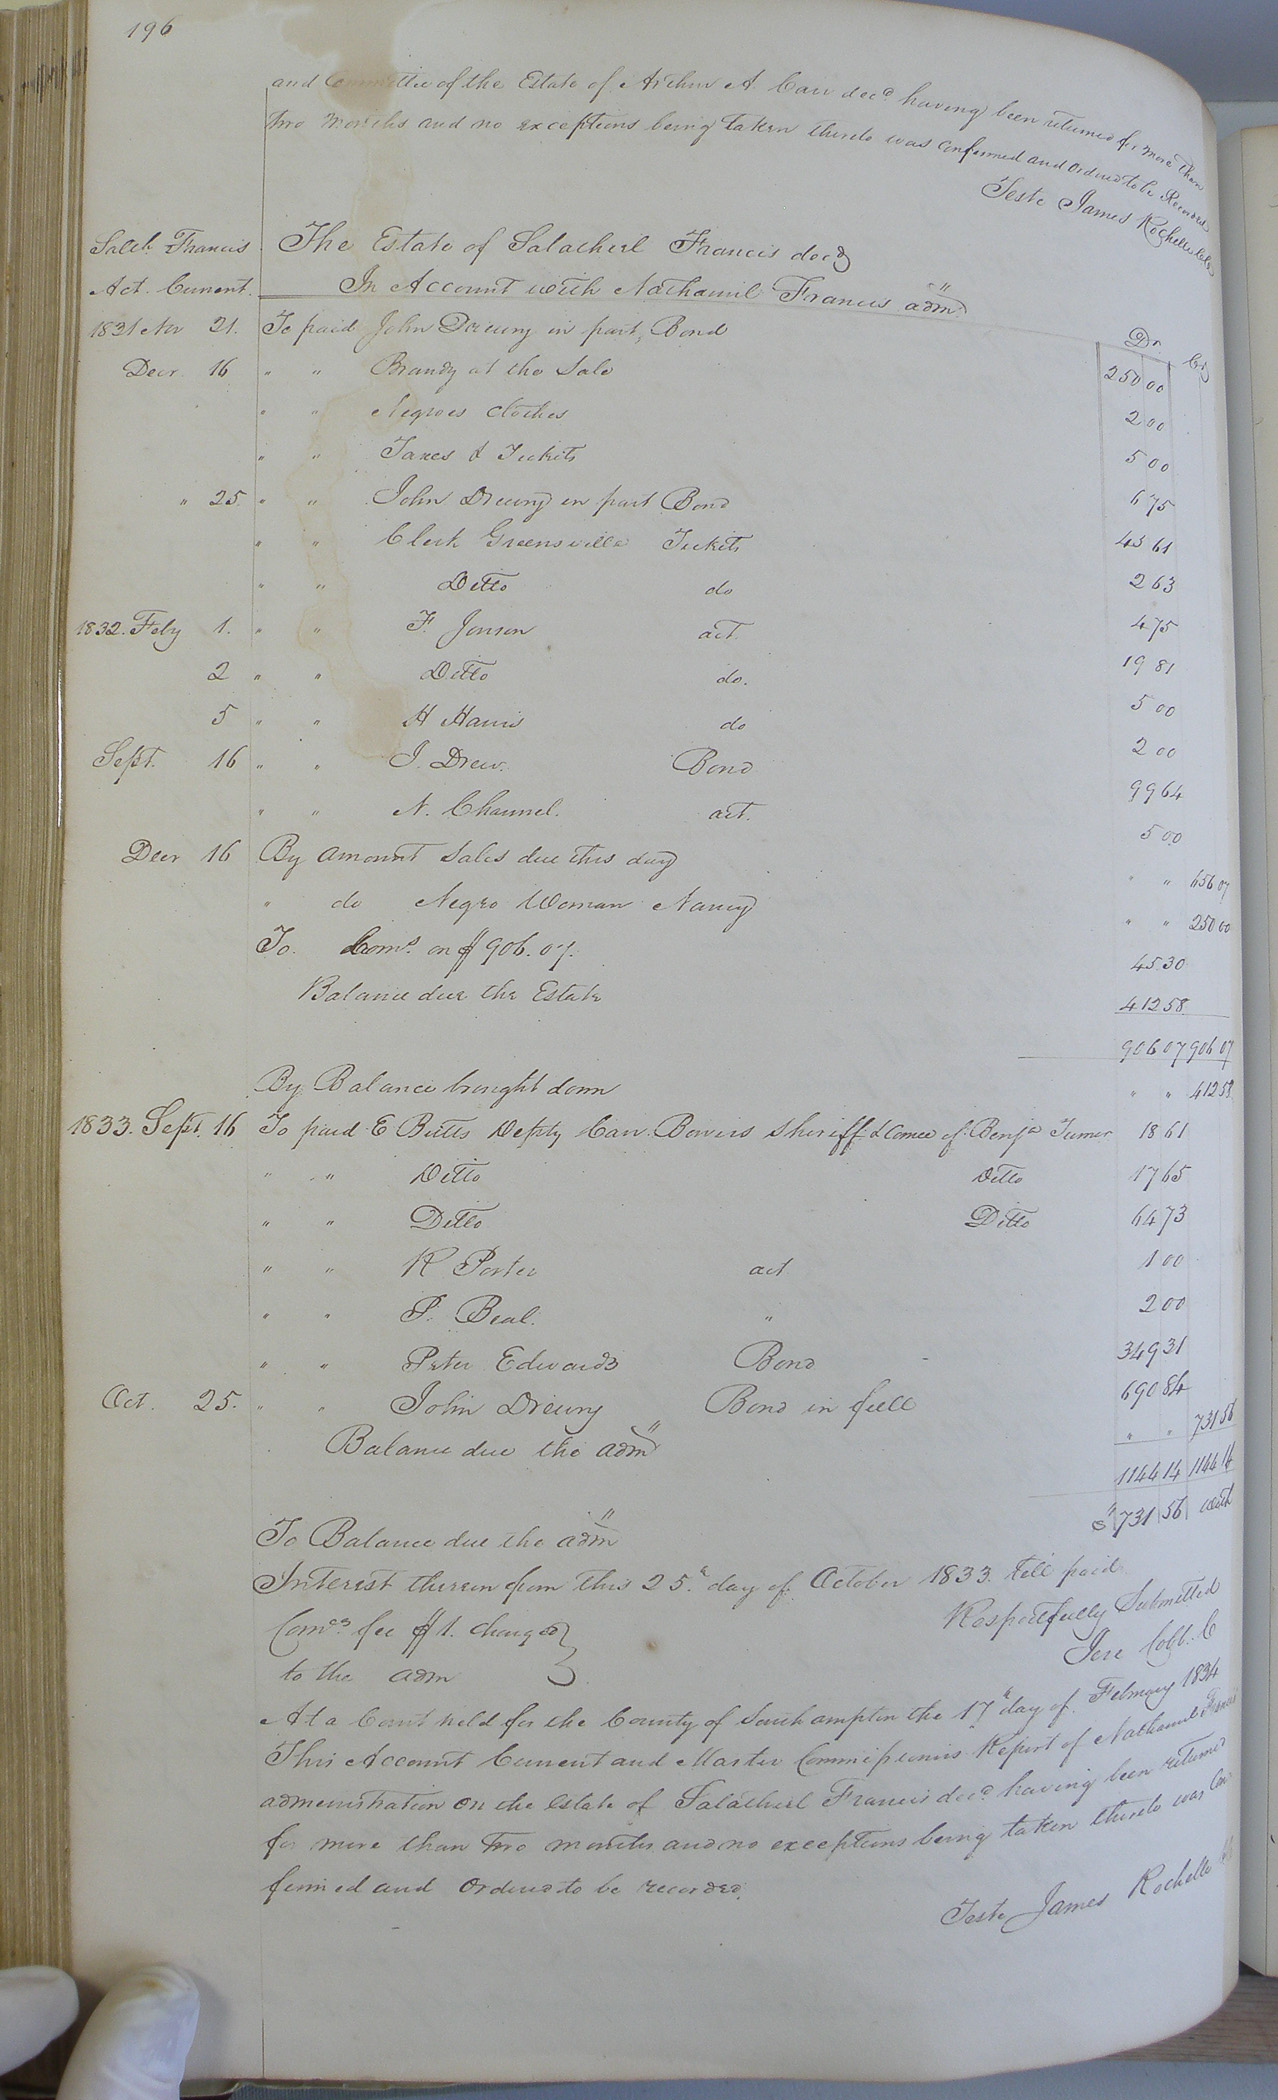 196
and Committee of the Estate of Arthur A. Carr decd having been returned for more than
two months and no exceptions being taken thereto was confirmed and ordered to be Recorded
Teste James Rochelle Clk
Salth Francis The Estate of Salathiel Francis decd
Act. Current. In Account with Nathaniel Francis adm
Dr Cr
1831 Nov 21. To paid John Drewry in part, Bond 250 00
Decr 16 " " Brandy at the Sale 2 00
" " Negroes clothes 5 00
" " Taxes & Tickets 6 75
" 25. " " John Drewry in part Bond 45 61
" " Clerk Greensville Tickets 2 63
" " Ditto do 4 75
1832. Feby 1. " " F. Jonson act. 19 81
2 " " Ditto do. 5 00
5 " " H Harris do 2 00
Sept. 16 " " J. Drew. Bond 99 64
" " N. Channel. act. 5 00
Decr 16 By amount Sales due this day " " 656 07
" do Negro Woman Nancy " " 250 00
To. Coms. on $906.07. 45 30
Balance due the Estate 412 58
906 07 906 07
By Balance brought down " " 412 58
1833. Sept. 16 To paid E Butts Depty Carr Bowers Sheriff & Comee of Benja Turner 18 61
" " Ditto Ditto 17 65
" " Ditto Ditto 64 73
" " R Porter act 1 00
" " P. Beal. " 2 00
" " Peter Edwards Bond 349 31
Oct. 25. " " John Drewry Bond in full 690 84
Balance due the adm " " 731 56
1144 14 1144 14
To Balance due the adm $731 56 with
Interest thereon from this 25th day of October 1833 till paid
Respectfully Submitted
Coms fee $1. charged
Jere Cobb. C
to the adm
At a Court held for the County of Southampton the 17th day of February 1834
This Account Current and Master Commissioners Report of Nathaniel Francis
administration on the estate of Salathiel Francis decd having been returned
for more than two months and no exceptions being taken thereto was Con
firmed and ordered to be recorded.
Teste James Rochelle Clk